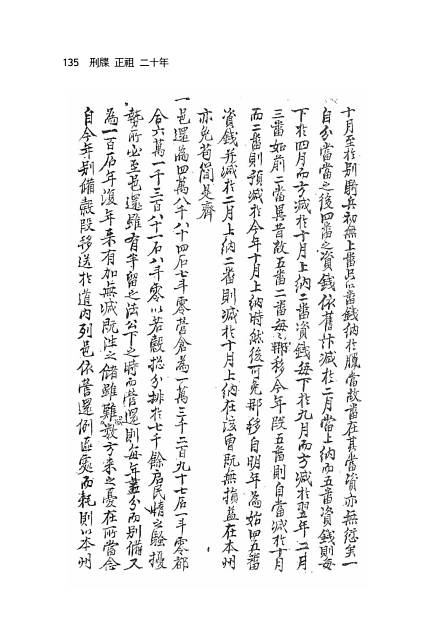 135 刑牒 正祖 二十年
十月至於別騎兵初無上番只以番錢納於騰當故當在其當資亦無愆矣一
自分當當之後四番之資錢依舊幷減於二月當上納而五番資錢則每
下於四月而方減於十月上納二番資錢每下於九月而方減於翌年二月
三番如前二番異昔故五番二番每那移今年段五番則自當減於十月
而二番則預減於今年十月上納時然後可免那移自明年為始四五番
資錢幷減於二月上納二番則減於十月上納在該曹既無損益在本州
亦免苟簡是齊
一邑還為四萬八千八十四石七斗零營倉為一萬三千二百九十七石一斗零都
合六萬一千三百八十一石八斗零以若殼摠分排於七千餘戶民情之騷擾
勢所必至邑還雖有半留之法公下之時而營還則每年盡分而別備又
為一百石年復年來有加無減既注之儲雖難數方來之憂在所當念
自今年別備殼段移送於道內列邑依營還例區處而耗則以本州